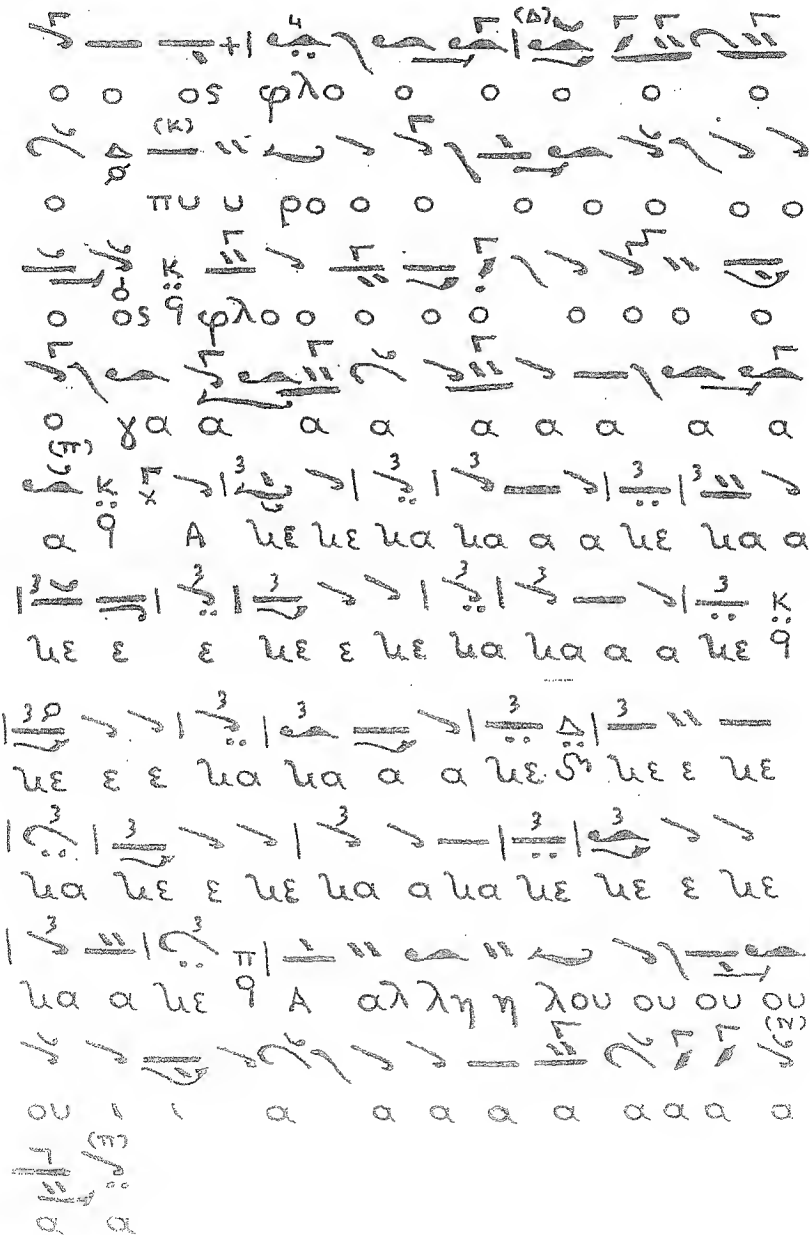 ο ο ος φλο ο ο ο ο ο
ο πυ υ ρο ο ο ο ο ο ο ο
ο ος φλο ο ο ο ο ο ο ο ο
ο γα α α α α α α α α
α Α κε κε κα κα α α κε κα α
κε ε ε κε ε κε κα κα α α κε
κε ε ε κα κα α α κε κε ε κε
κα κε ε κε κα α κα κε κε ε κε
κα α κε Α αλ λη η λου ου ου ου
ου ι ι α α α α α α α α α
α α